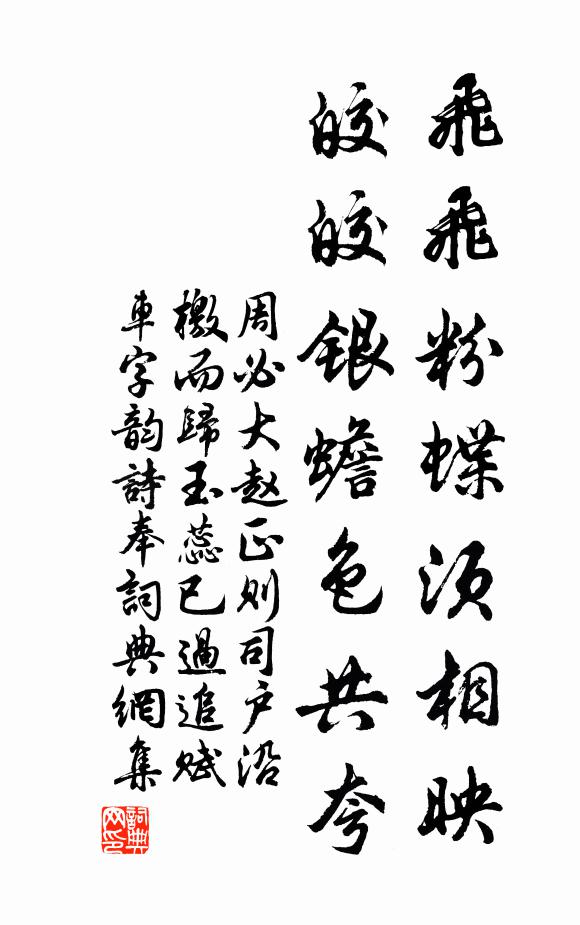 飛飛粉蝶須相映
皎皎銀蟾色共夸
周必大赵正则司户沿
檄而歸玉蕊已過追賦
車字韵詩奉詞典網集
詞典
网印